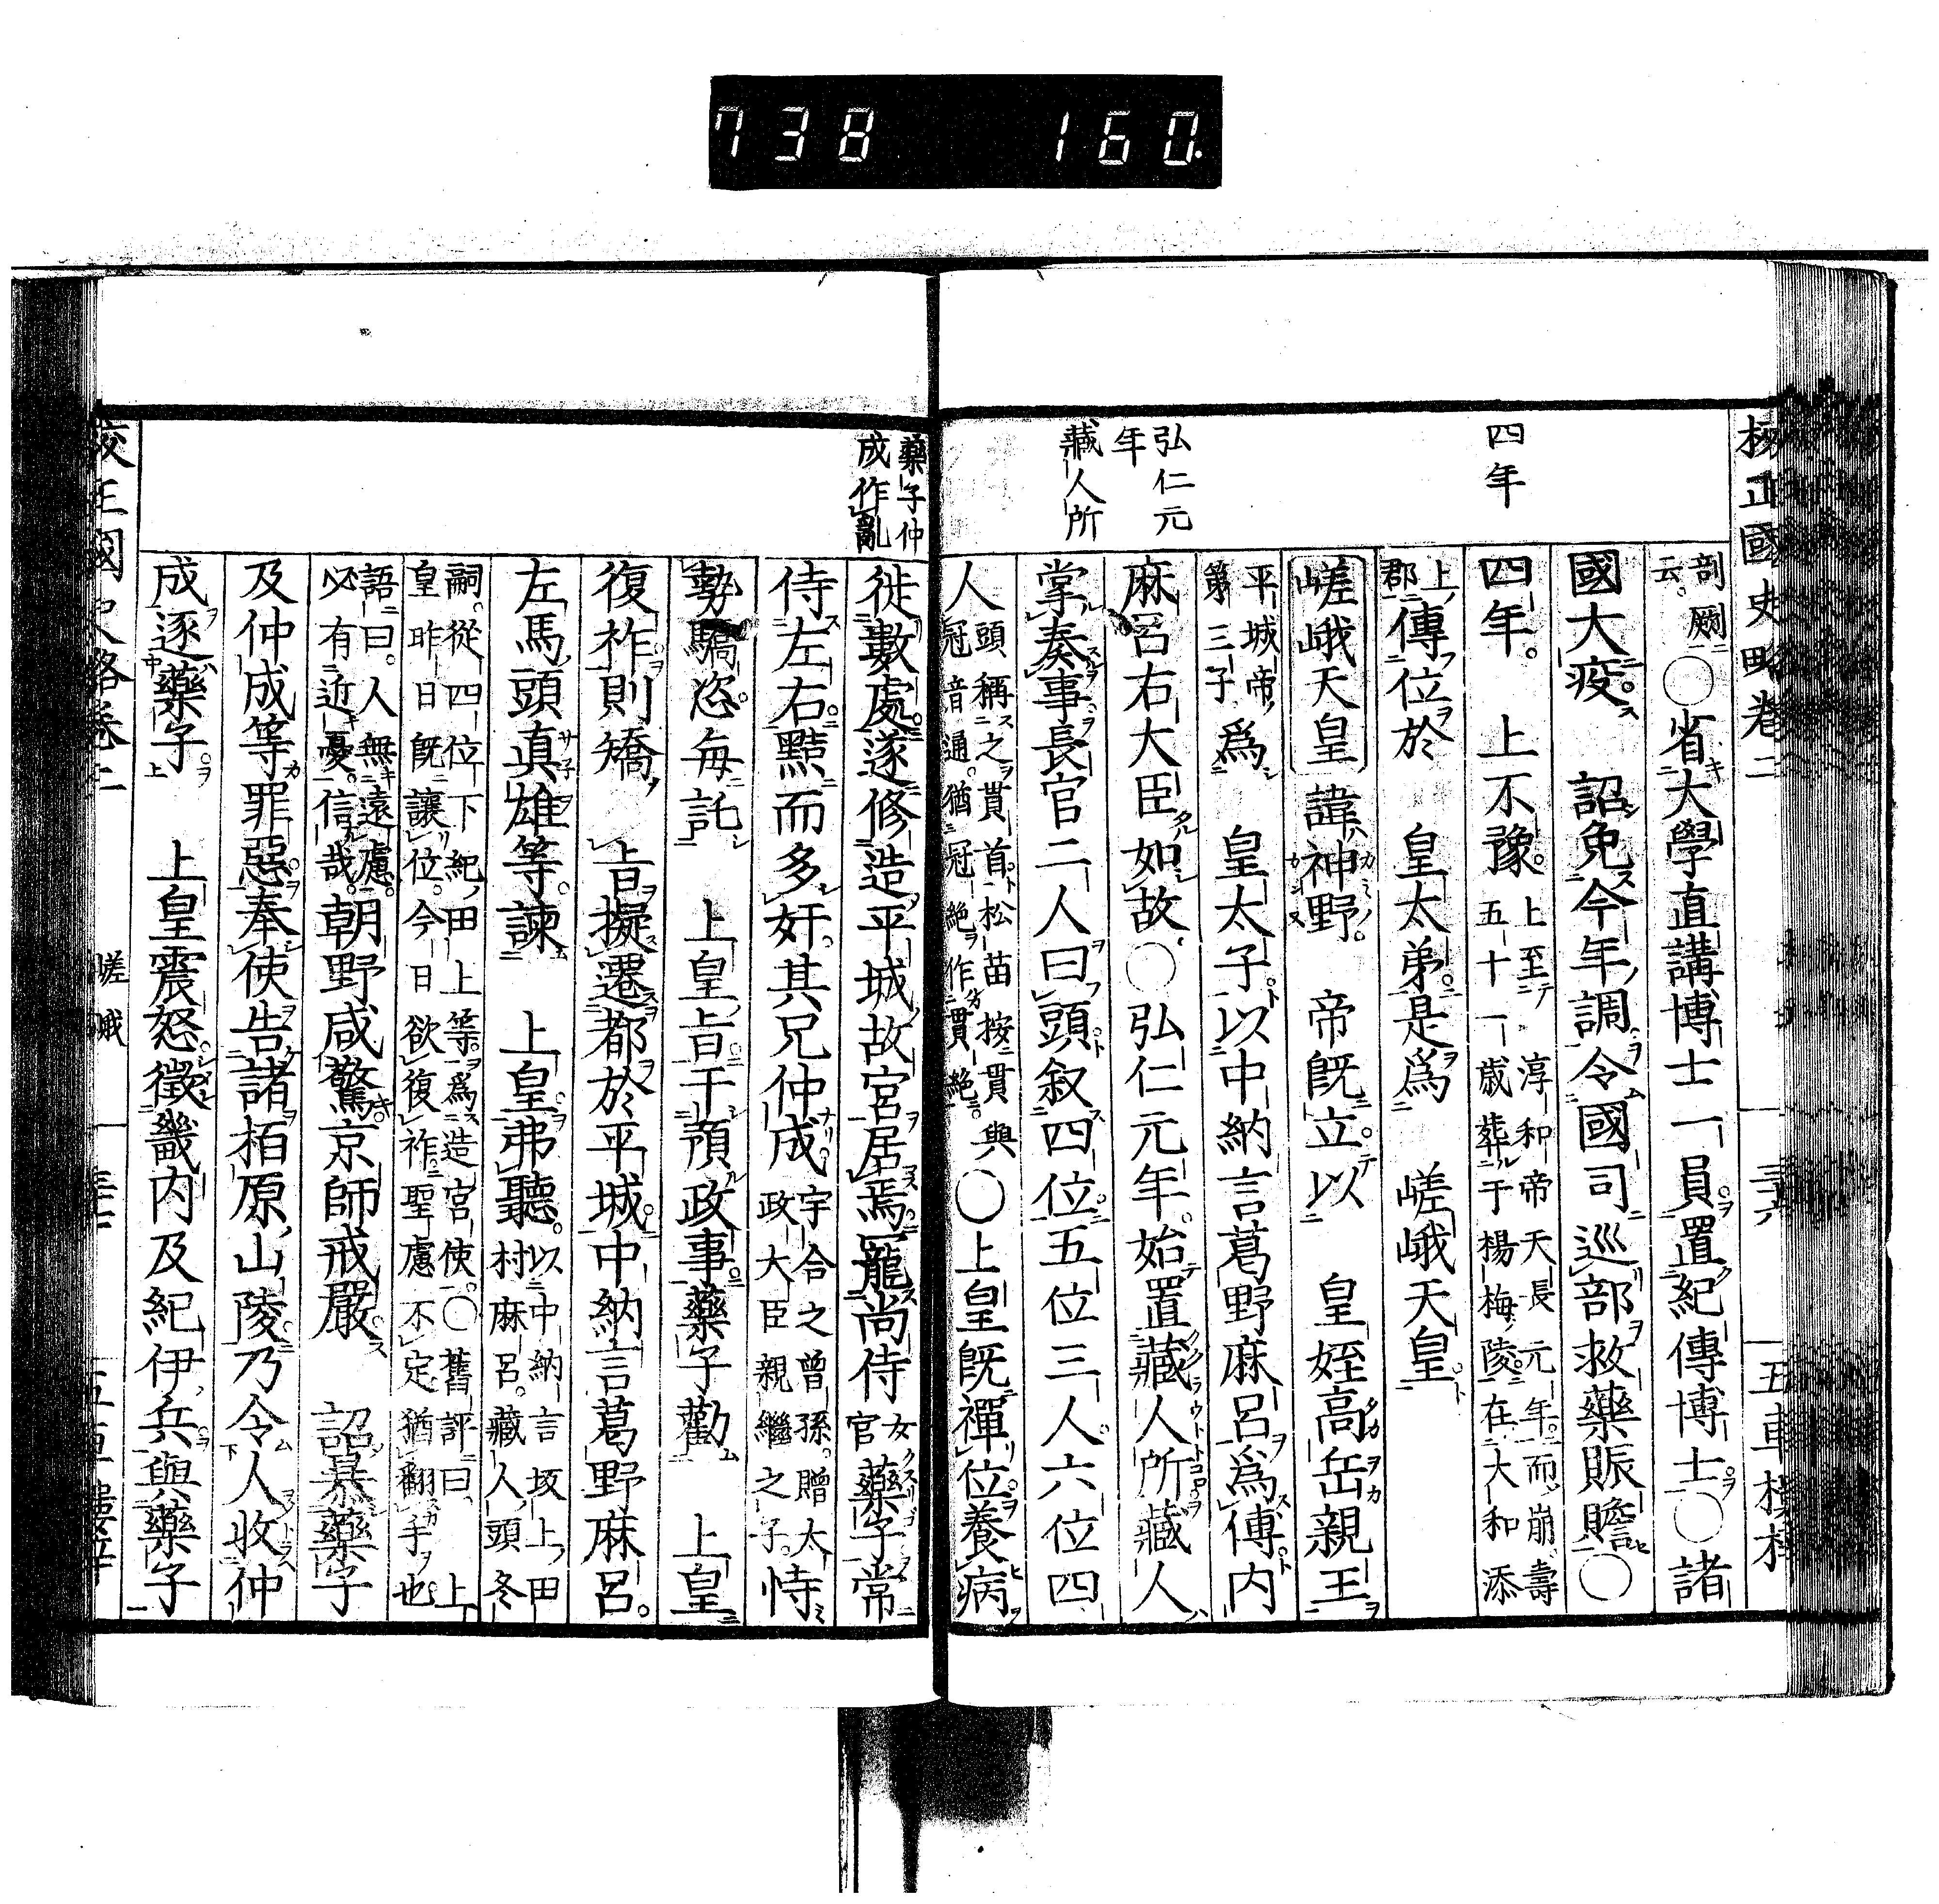 738 160
校正國史畧卷二 三六 五車樓梓
四年
弘仁元
年
藏人所
剖厥
云。○省大學直講博士一員置紀傳博士○諸
國大疫。 詔免今年調令國司巡部救藥賑贍○
四年。 上不豫。上至淳和帝天長元年而崩壽
五十一歲葬于楊梅陵在大和添
上
郡傳位於 皇太弟是爲 嵯峨天皇
嵯峨天皇 諱神野 帝既立以 皇姪高岳親王
平城帝
第三子爲 皇太子以中納言葛野麻呂爲傅內
麻呂右大臣如故○弘仁元年始置藏人所藏人
掌奏事長官二人曰頭叙四位五位三人六位四
人頭稱之貫首松苗按貫與
冠音通。猶冠絶作貫絶。○上皇既禪位養病
藥子仲
成作亂
徙數處遂修造平城故宮居焉寵尚侍女
官藥子常
侍左右黠而多奸其兄仲成宇合之曾孫。贈太
政大臣親繼之子。恃
勢驕恣每託 上皇旨干預政事藥子勸 上皇
復祚則矯旨擬遷都於平城中納言葛野麻呂。
左馬頭真雄等諫 上皇弗聽。以中納言坂上田
村麻呂。藏人頭冬
嗣。從四位下紀田上等爲造宮使。○舊評曰上
皇昨日既讓位。今日欲復祚聖慮不定猶翻手也
語曰。人無遠慮。
必有近憂。信哉。朝野咸驚京師戒嚴 詔暴藥子
及仲成等罪惡奉使告諸柏原山陵乃令人收仲
成逐藥子 上皇震怒徵畿內及紀伊兵與藥子
校正國史畧卷二 嵯峨 五車樓梓